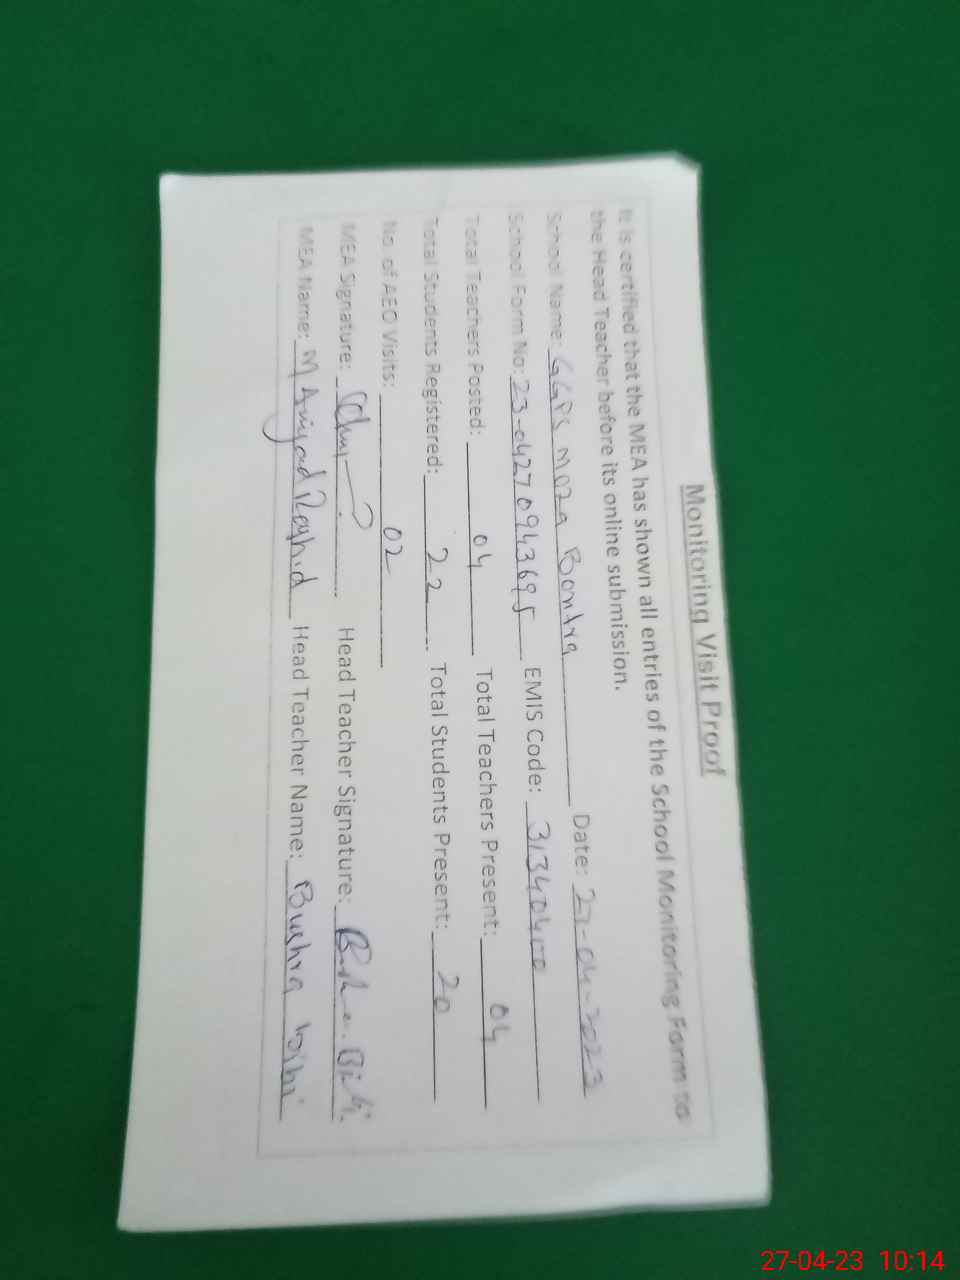 Monitoring Visit Proof
It is certified that the MEA has shown all entries of the School Monitoring Form to
the Head Teacher before its online submission.
School Name: GGPS Moza Bontra Date: 27-04-2023
School Form No: 23-04270943695 EMIS Code: 31340400
Total Teachers Posted: 04 Total Teachers Present: 04
Total Students Registered: 22 Total Students Present: 20
No of AEO Visits: 02
MEA Signature: Head Teacher Signature: Bushra Bibi
MEA Name: M Rashid Head Teacher Name: Bushra bibi
27-04-23 10:14